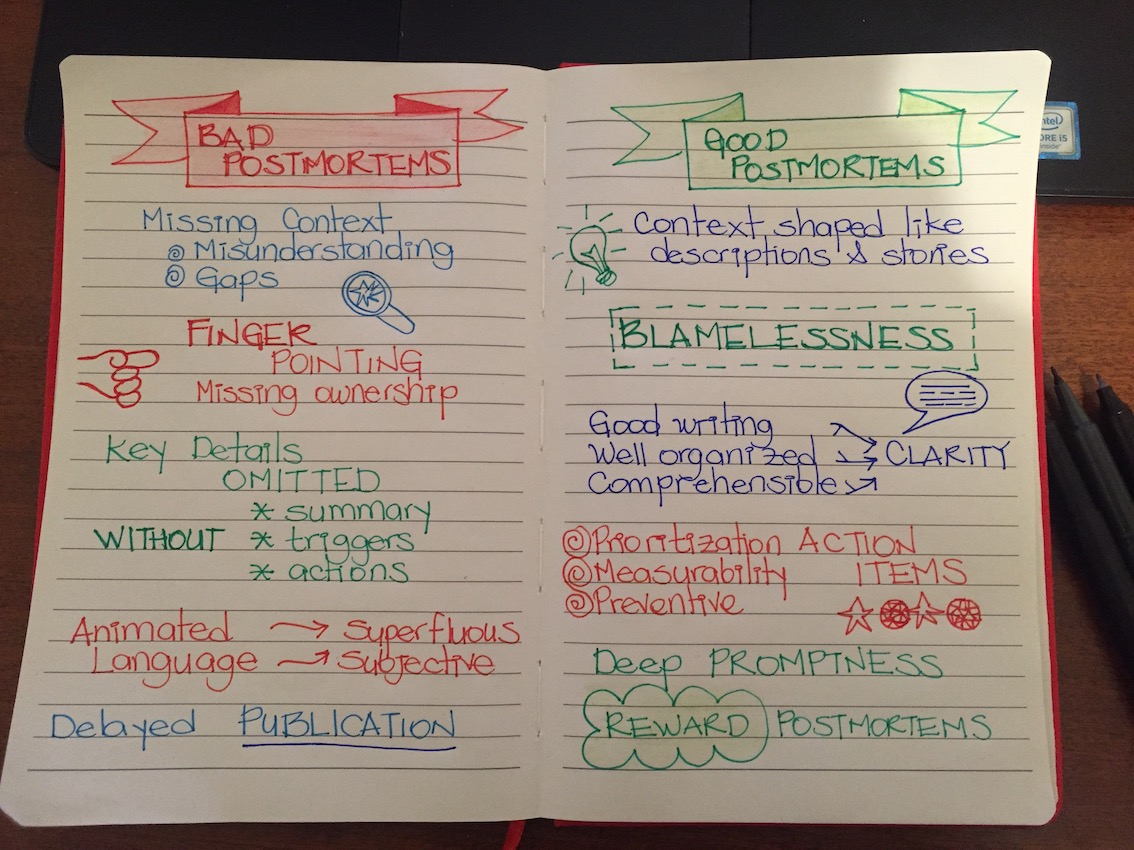 BAD
POSTMORTEMS
Missing Context
Misunderstanding
Gaps
FINGER
POINTING
Missing ownership
Key Details
OMITTED
* summary
WITHOUT * triggers
* actions
Animated → superfluous
Language → subjective
Delayed PUBLICATION
GOOD
POSTMORTEMS
Context shaped like
descriptions & stories
BLAMELESSNESS
Good writing
Well organized → CLARITY
Comprehensible
Prioritization ACTION
Measurability ITEMS
Preventive
Deep PROMPTNESS
REWARD POSTMORTEMS
intel
CORE i5
inside